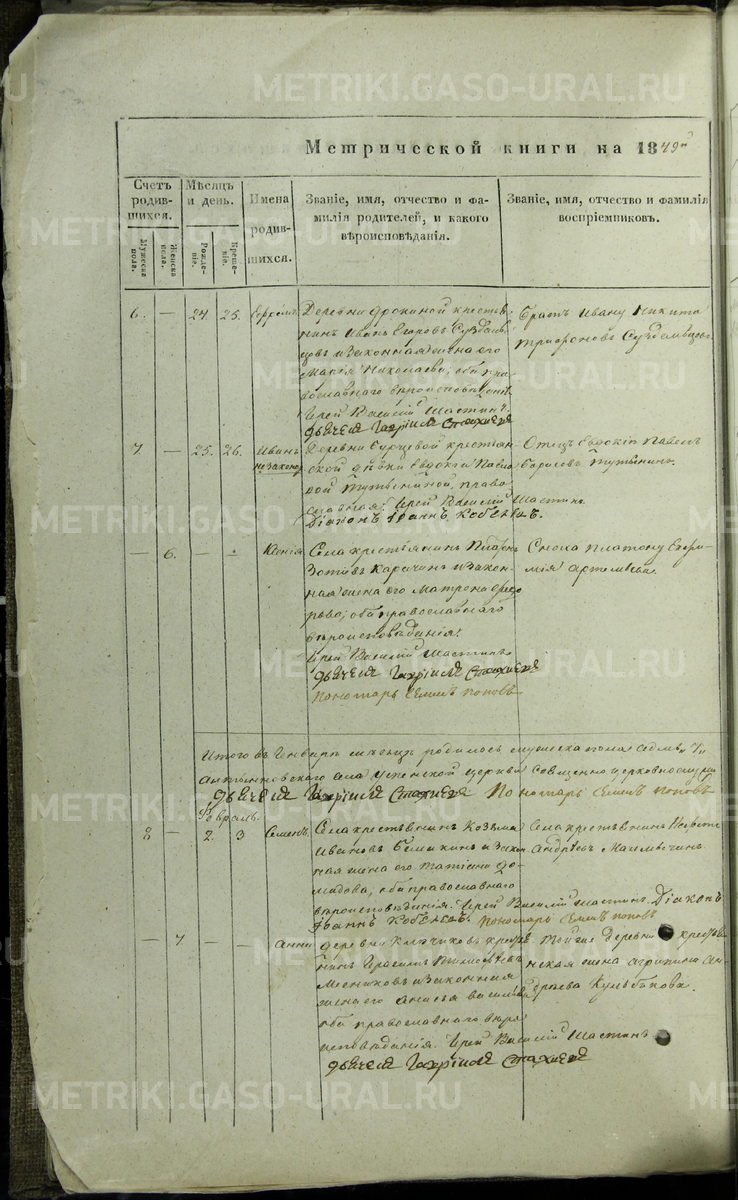 METRIKI.GASO-URAL.RU
Метрической книги на 1849й
Счетъ родив-шихся.
Мѣсяцъ и день.
Имена родив-шихся.
Званіе, имя, отчество и фа-
милія родителей, и какого
вѣроисповѣданія.
Званіе, имя, отчество и фамилія
воспріемниковъ.
Мужеска пола.
Женска пола.
Рожде-ніе.
Креще-ніе.
6. — 24. 25. Ефремъ.
Деревни крестья-
нинъ Иванъ Егоровъ Суздаль-
цовъ и законная жена его
Марія Николаева; оба пра-
вославнаго вѣроисповѣданія.
Іерей Василій Шастинъ.
Дьячекъ Гавріилъ Стахіевъ
Братъ Ивану Никита
Трифоновъ Суздальцовъ.
7 — 25. 26. Иванъ незакон.
Деревни Бурцевой крестьян-
ской дѣвки Евдокіи Павло-
вой Путыниной, право-
славная. Іерей Василій Шастинъ
Діаконъ Іоаннъ Кобелевъ.
Отецъ Евдокіи Павелъ
Борисовъ Путынинъ.
— 6. — - Ксенія.
Села крестьянинъ Платонъ
Зотовъ Карачинъ и закон-
ная жена его Матрона Ѳедо
рова; оба православнаго
вѣроисповѣданія.
Іерей Василій Шастинъ
Дьячекъ Гавріилъ Стахіевъ
Пономарь Семенъ Поповъ
Сноха Платону Евфи-
мія Артемьева.
Итого въ Генварѣ мѣсяцѣ родилось мужеска пола седмь „7„
села Успенской церкви священно церковнослужи
Дьячекъ Гавріилъ Стахіевъ Пономарь Семенъ Поповъ
Февраль.
8 — 2. 3 Семенъ.
Села крестьянинъ Козьма
Ивановъ и закон
ная жена его Татіана До-
мидова, оба православнаго
вѣроисповѣданія. Іерей Василій Шастинъ. Діаконъ
Іоаннъ Кобелевъ. Пономарь Семенъ Поповъ
Села крестьянинъ
Андреевъ
— 7 — - Анна
Деревни крестья
нинъ Герасимъ Тимофеевъ
Месниковъ и законная
жена его Анисья Васильева
оба православнаго вѣро
исповѣданія. Іерей Василій Шастинъ
Дьячекъ Гавріилъ Стахіевъ
Тойже деревни крестья
нская жена Агрипина Ан
дреева